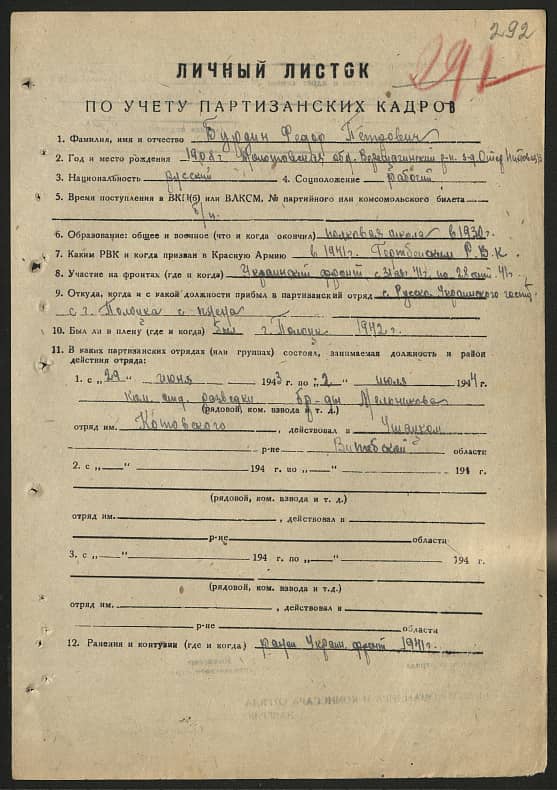 292
291
ЛИЧНЫЙ ЛИСТОК
ПО УЧЕТУ ПАРТИЗАНСКИХ КАДРОВ
1. Фамилия, имя и отчество Бурдин Федор Петрович
2. Год и место рождения 1908г. Молотовская обл. Верещагинский р-н.
3. Национальность русский 4. Соцположение рабочий
5. Время поступления в ВКП(б) или ВЛКСМ, № партийного или комсомольского билета
б/п.
6. Образование: общее и военное (что и когда окончил) полковая школа в 1930г.
7. Каким РВК и когда призван в Красную Армию в 1941г. Р.В.К.
8. Участие на фронтах (где и когда) Украинский фронт, с 41г. по 28 41г.
9. Откуда, когда и с какой должности прибыл в партизанский отряд с.
с г. Полоцка с плена
10. Был ли в плену (где и когда) был г. Полоцк 1942г.
11. В каких партизанских отрядах (или группах) состоял, занимаемая должность и район
действия отряда:
1. с „29" июня 1943 г. по „2" июля 1944 г.
Ком. отд. разведки бр-ды Мельникова
(рядовой, ком. взвода и т. д.)
отряд им. Котовского, действовал в Ушацком
р-не Витебской области
2. с „ — " 194 г. по „ — " 194 г.
(рядовой, ком. взвода и т. д.)
отряд им. , действовал в
р-не области
3. с „ — " 194 г. по „ — " 194 г.
(рядовой, ком. взвода и т.д.)
отряд им. , действовал в
р-не области
12. Ранения и контузии (где и когда) ранен Украин. фронт 1941г.